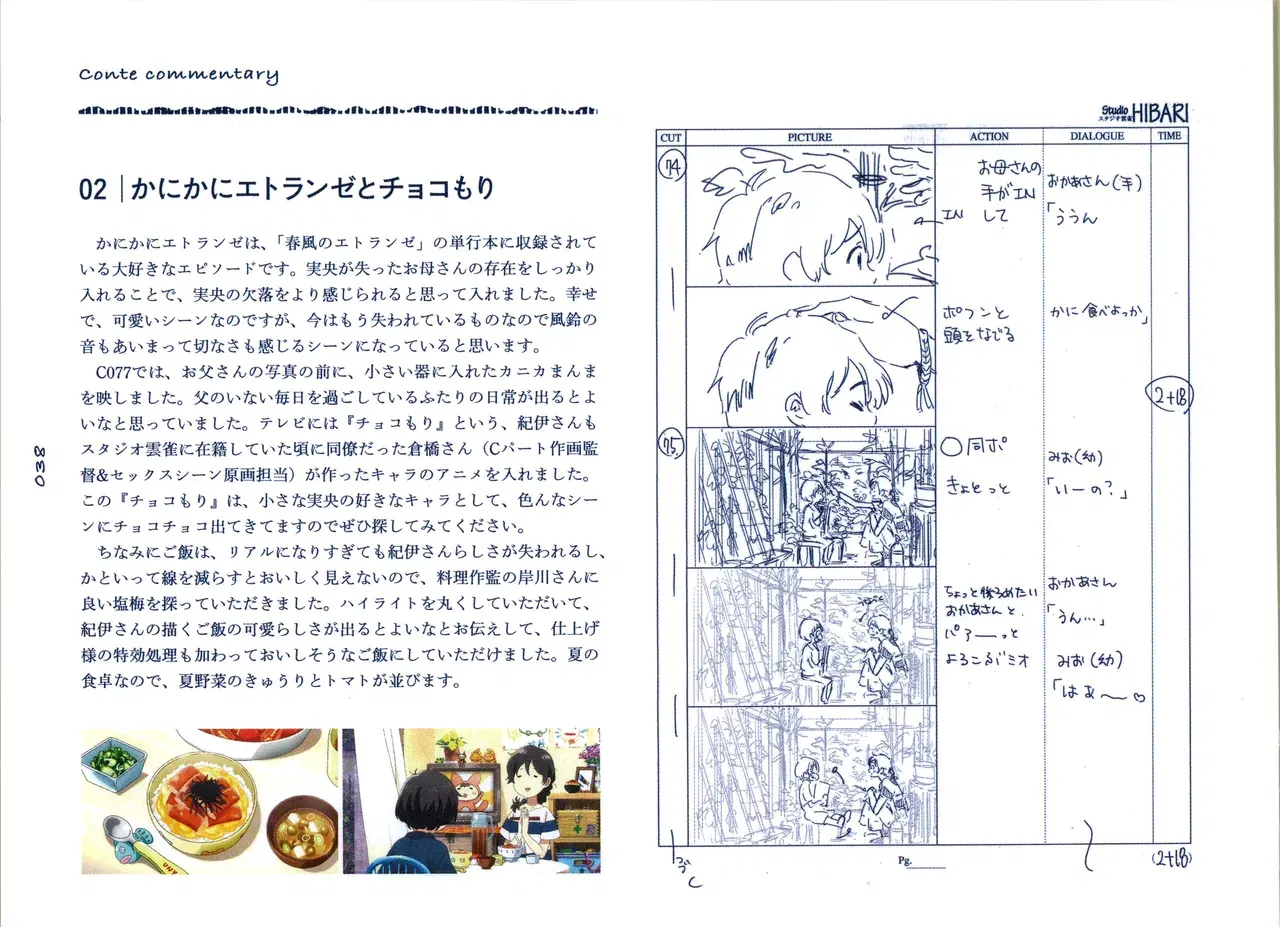 Conte commentary
02 | かにかにエトランゼとチョコもり
かにかにエトランゼは、「春風のエトランゼ」の単行本に収録されて
いる大好きなエピソードです。実央が失ったお母さんの存在をしっかり
入れることで、実央の欠落をより感じられると思って入れました。幸せ
で、可愛いシーンなのですが、今はもう失われているものなので風鈴の
音もあいまって切なさも感じるシーンになっていると思います。
C077では、お父さんの写真の前に、小さい器に入れたカニカまんま
を映しました。父のいない毎日を過ごしているふたりの日常が出るとよ
いなと思っていました。テレビには『チョコもり』という、紀伊さんも
スタジオ雲雀に在籍していた頃に同僚だった倉橋さん（Cパート作画監
督&セックスシーン原画担当）が作ったキャラのアニメを入れました。
この『チョコもり』は、小さな実央の好きなキャラとして、色んなシー
ンにチョコチョコ出てきてますのでぜひ探してみてください。
ちなみにご飯は、リアルになりすぎても紀伊さんらしさが失われるし、
かといって線を減らすとおいしく見えないので、料理作監の岸川さんに
良い塩梅を探っていただきました。ハイライトを丸くしていただいて、
紀伊さんの描くご飯の可愛らしさが出るとよいなとお伝えして、仕上げ
様の特効処理も加わっておいしそうなご飯にしていただけました。夏の
食卓なので、夏野菜のきゅうりとトマトが並びます。
038
Studio HIBARI
スタジオ雲雀
CUT PICTURE ACTION DIALOGUE TIME
74
お母さんの
手がIN
して
IN
おかあさん(手)
「ううん
ポフンと
頭をなでる
かに食べよっか」
2+18
75
○同ポ
きょとっと
みお(幼)
「いーの?」
ちょっと後ろめたい
おかあさんと、
パァーっと
よろこぶミオ
おかあさん
「うん…」
みお(幼)
「はぁ〜♡
Pg.
(2+18)